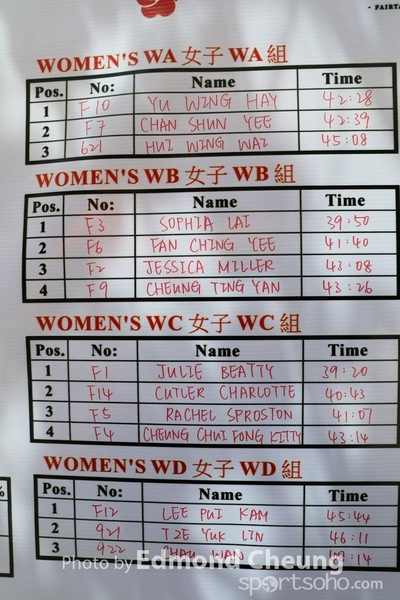 - FAIRTA
WOMEN'S WA 女子 WA 組
Pos. No: Name Time
1 F10 YU WING HAY 42:28
2 F7 CHAN SHUN YEE 42:39
3 621 HUI WING WAI 45:08
WOMEN'S WB 女子 WB 組
Pos. No: Name Time
1 F3 SOPHIA LAI 39:50
2 F6 FAN CHING YEE 41:40
3 F2 JESSICA MILLER 43:08
4 F9 CHEUNG TING YAN 43:26
WOMEN'S WC 女子 WC 組
Pos. No: Name Time
1 F1 JULIE BEATTY 39:20
2 F14 CUTLER CHARLOTTE 40:43
3 F5 RACHEL SPROSTON 41:07
4 F4 CHEUNG CHUI FONG KITTY 43:14
WOMEN'S WD 女子 WD 組
Pos. No: Name Time
1 F12 LEE PUI KAM 45:44
2 921 TZE YUK LIN 46:11
3 922 CHAU WAN :14
Photo by Edmond Cheung
sportsoho.com